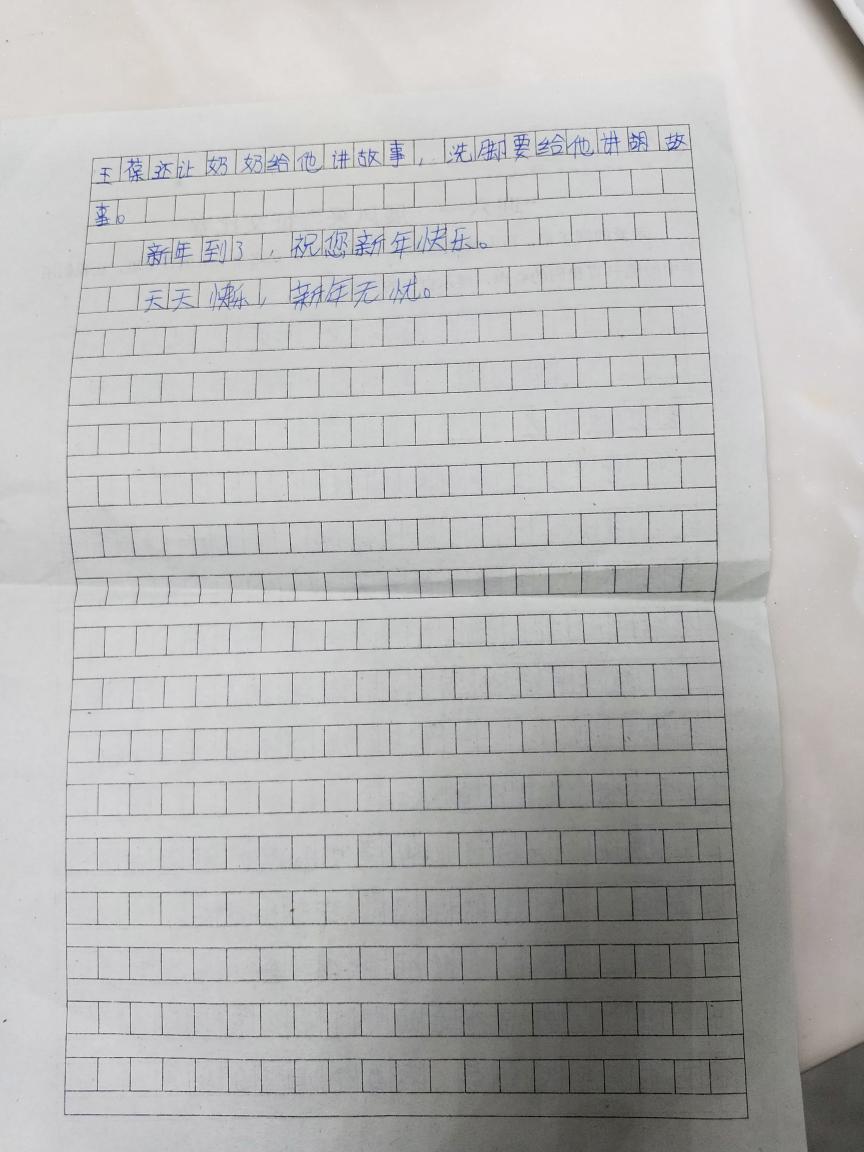 王葆还让奶奶给他讲故事，洗脚要给他讲胡故
事。
新年到了，祝您新年快乐。
天天快乐，新年无忧。